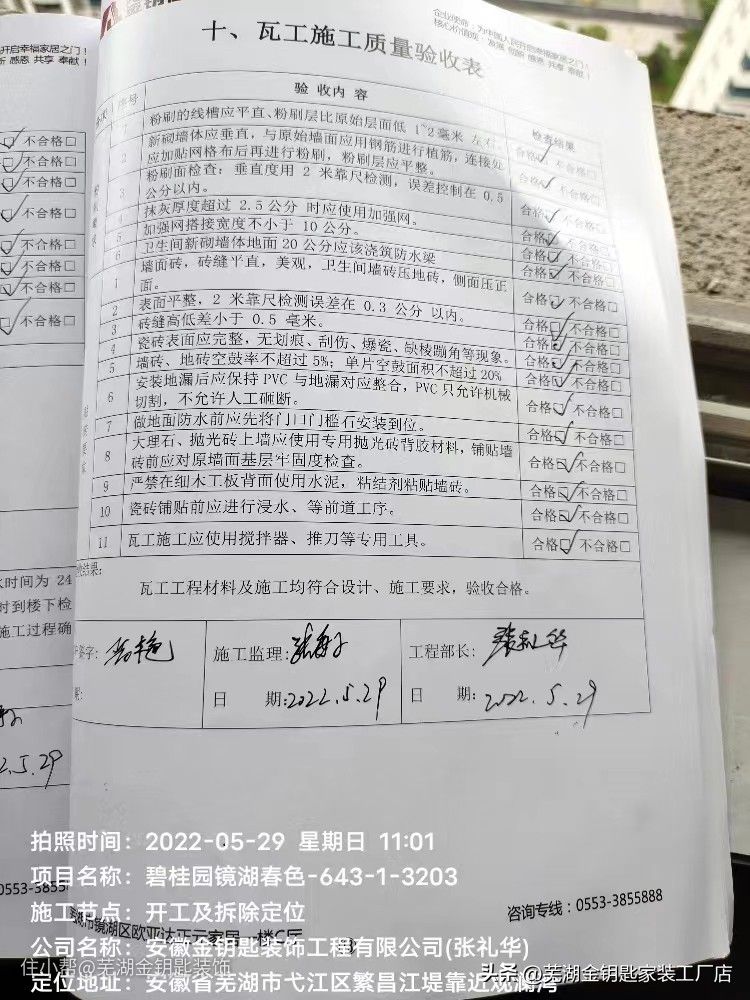 企业使命:为中国人民开启幸福家居之门!
核心价值观:发展 创新 感恩 共享 奉献!
开启幸福家居之门!
新 感恩 共享 奉献!
十、瓦工施工质量验收表
序号
验收内容
检查结果
1 粉刷的线槽应平直、粉刷层比原始层面低 1~2毫米 左右。 合格☑ 不合格□
2 新砌墙体应垂直,与原始墙面应用钢筋进行植筋,连接处
应加贴网格布后再进行粉刷,粉刷层应平整。 合格☑ 不合格□
3 粉刷面检查:垂直度用 2 米靠尺检测,误差控制在 0.5
公分以内。 合格☑ 不合格□
抹灰厚度超过 2.5公分 时应使用加强网。 合格☑ 不合格□
5 加强网搭接宽度不小于 10公分。 合格☑ 不合格□
6 卫生间新砌墙体地面20公分应该浇筑防水梁 合格☑ 不合格□
1 墙面砖,砖缝平直,美观,卫生间墙砖压地砖,侧面压正
面。 合格☑ 不合格□
2 表面平整,2 米靠尺检测误差在 0.3 公分 以内。 合格☑ 不合格□
3 砖缝高低差小于 0.5 毫米。 合格☑ 不合格□
4 瓷砖表面应完整,无划痕、刮伤、爆瓷、缺棱蹦角等现象。 合格☑ 不合格□
5 墙砖、地砖空鼓率不超过5%;单片空鼓面积不超过20% 合格☑ 不合格□
6 安装地漏后应保持PVC与地漏对应整合,PVC只允许机械
切割,不允许人工砸断。 合格☑ 不合格□
7 做地面防水前应先将门口门槛石安装到位。 合格☑ 不合格□
8 大理石、抛光砖上墙应使用专用抛光砖背胶材料,铺贴墙
砖前应对原墙面基层牢固度检查。 合格☑ 不合格□
9 严禁在细木工板背面使用水泥,粘结剂粘贴墙砖。 合格☑ 不合格□
10 瓷砖铺贴前应进行浸水、等前道工序。 合格☑ 不合格□
11 瓦工施工应使用搅拌器、推刀等专用工具。 合格☑ 不合格□
结果:
瓦工工程材料及施工均符合设计、施工要求,验收合格。
签字:
施工监理:
工程部长:
日 期:2022.5.29
日 期:2022.5.29
不合格□
不合格□
不合格□
不合格□
不合格□
不合格□
不合格□
不合格□
水时间为 24
时到楼下检
施工过程确
2.5.29
0553-3855
咨询专线:0553-3855888
拍照时间:2022-05-29 星期日 11:01
项目名称:碧桂园镜湖春色-643-1-3203
施工节点:开工及拆除定位
公司名称:安徽金钥匙装饰工程有限公司(张礼华)
定位地址:安徽省芜湖市弋江区繁昌江堤靠近观澜湾
住小帮@芜湖金钥匙装饰
头条@芜湖金钥匙家装工厂店